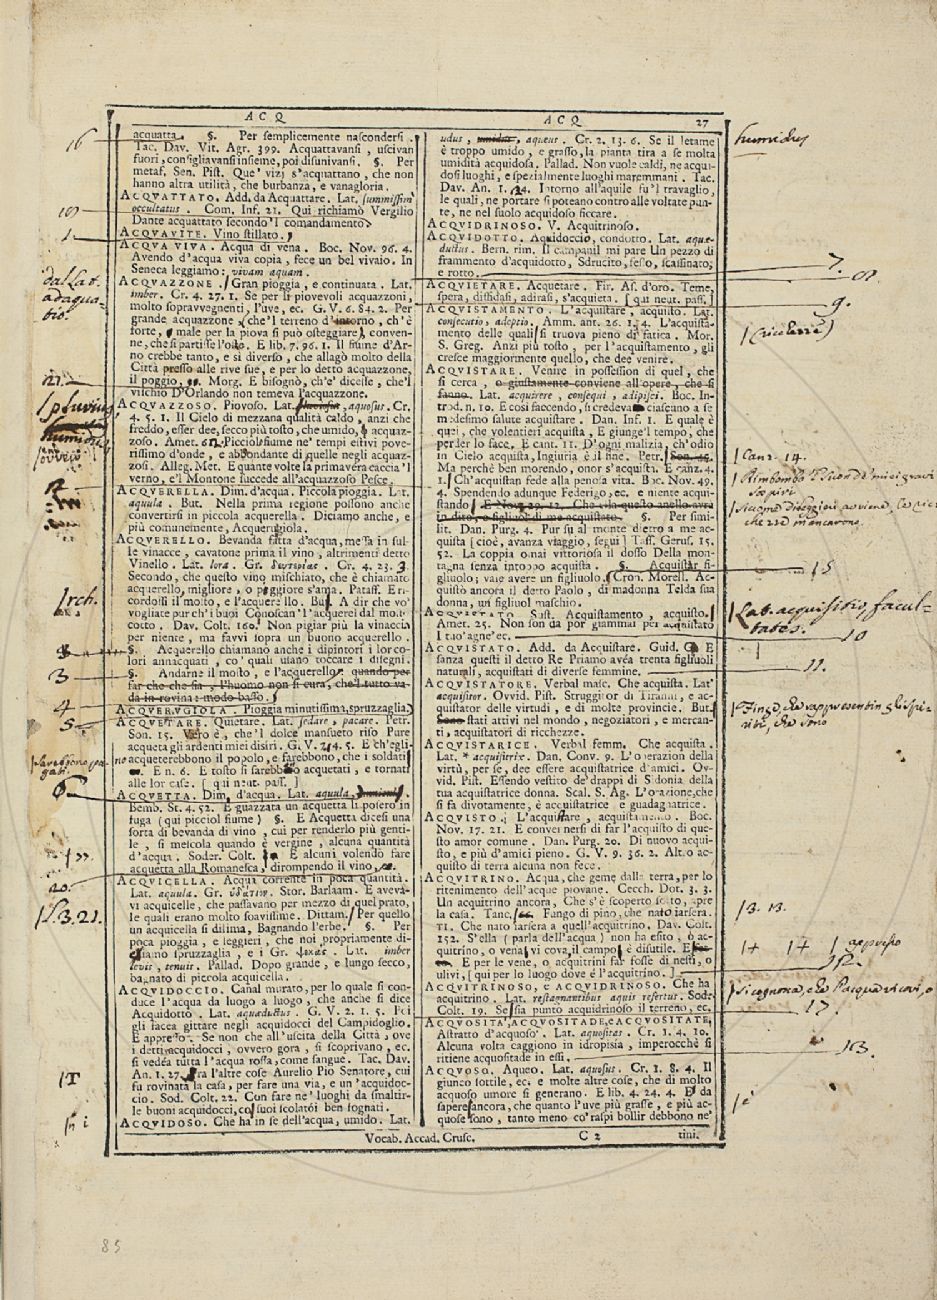 ACQ
ACQ 27
acquatta. §. Per semplicemente nascondersi.
Tac. Dav. Vit. Agr. 399. Acquattavansi, uscivan
fuori, consigliavansi insieme, poi disunivansi. §. Per
metaf. Sen. Pist. Que' vizj s'acquattano, che non
hanno altra utilità, che burbanza, e vanagloria.
ACQUATTATO. Add. da Acquattare. Lat. summissim'
occultatus. Com. Inf. 21. Qui richiamò Vergilio
Dante acquattato secondo 'l comandamento
ACQUAVITE. Vino stillato.
ACQUA VIVA. Acqua di vena. Boc. Nov. 96. 4.
Avendo d'acqua viva copia, fece un bel vivaio. In
Seneca leggiamo: vivam aquam.
ACQUAZZONE. Gran pioggia, e continuata. Lat.
imber. Cr. 4. 27. 1. Se per li piovevoli acquazzoni,
molto sopravvegnenti, l'uve, ec. G. V. 6. 84. 2. Per
grande acquazzone, che 'l terreno d'intorno, ch'è
forte, male per la piova si può osteggiare, conven-
ne, che si partisse l'oste. E lib. 7. 96. 1. Il fiume d'Ar-
no crebbe tanto, e sì diverso, che allagò molto della
Città presso alle rive sue, e per lo detto acquazzone,
il poggio, Morg. E bisognò, ch'e' dicesse, che 'l
vischio D'Orlando non temeva l'acquazzone.
ACQUAZZOSO. Piovoso. Lat. pluviosus, aquosus. Cr.
4. 5. 1. Il Cielo di mezzana qualità caldo, anzi che
freddo, esser dee, secco più tosto, che umido, acquaz-
zoso. Amet. Piccioli fiume ne' tempi estivi pove-
rissimo d'onde, e abbondante di quelle negli acquaz-
zosi. Alleg. Met. E quante volte la primavera caccia 'l
verno, e 'l Montone succede all'acquazzoso Pesce.
ACQUERELLA. Dim. d'acqua. Piccola pioggia. Lat.
aquula. But. Nella prima regione possono anche
convertirsi in piccola acquerella. Diciamo anche, e
più comunemente, Acquerugiola.
ACQUERELLO. Bevanda fatta d'acqua, messa in sul-
le vinacce, cavatone prima il vino, altrimenti detto
Vinello. Lat. lora. Gr. Cr. 4. 23. 3
Secondo, che questo vino mischiato, che è chiamato
acquerello, migliore, o peggiore s'ama. Pataff. E ri-
cordossi il mosto, e l'acquerello. But. A dir che vo'
vogliate pur ch'i buoi Conoscan l'acquerel dal mos-
cotto. Dav. Colt. 160. Non pigiar più la vinaccia
per niente, ma favvi sopra un buono acquerello.
§. Acquerello chiamano anche i dipintori i lor co-
lori annacquati, co' quali usano toccare i disegni.
§. Andarne il mosto, e l'acquerello quando per
far che che sia, l'huomo non si cura, che 'l tutto va-
da in rovina: modo basso.
ACQUERUGIOLA. Pioggia minutissima, spruzzaglia.
ACQUETARE. Quietare. Lat. sedare, pacare. Petr.
Son. 15. Vero è, che 'l dolce mansueto riso Pure
acqueta gli ardenti miei disiri. G. V. 4. 5. E ch'egli-
no acqueterebbono il popolo, e farebbono, che i soldati
E n. 6. E tosto si sarebbono acquetati, e tornati
alle lor case. [qui neut. pass.]
ACQUETTA. Dim. d'acqua. Lat. aquula,
Bemb. St. 4. 52. E guazzata un acquetta si posero in
fuga (qui picciol fiume) §. E Acquetta dicesi una
sorta di bevanda di vino, cui per renderlo più genti-
le, si mescola quando è vergine, alcuna quantità
d'acqua. Soder. Colt. E alcuni volendo fare
acquetta alla Romanesca, dirompendo il vino,
ACQUICELLA. Acqua corrente in poca quantità.
Lat. aquula. Gr. ὑδάτιον. Stor. Barlaam. E aveva-
vi acquicelle, che passavano per mezzo di quel prato,
le quali erano molto soavissime. Dittam. Per quello
un acquicella si dilima, Bagnando l'erbe. §. Per
poca pioggia, e leggieri, che noi propriamente di-
ciamo spruzzaglia, e i Gr. Lat. imber
levis, tenuis. Pallad. Dopo grande, e lungo secco,
bagnato di piccola acquicella.
ACQUIDOCCIO. Canal murato, per lo quale si con-
duce l'acqua da luogo a luogo, che anche si dice
Acquidotto. Lat. aquæductus. G. V. 2. 1. 5. Poi
gli facea gittare negli acquidocci del Campidoglio.
E appresso. Se non che all'uscita della Città, ove
i detti acquidocci, ovvero gora, si scoprivano, ec.
si vedéa tutta l'acqua rossa, come sangue. Tac. Dav.
An. 1. 27. Fra l'altre cose Aurelio Pio Senatore, cui
fu rovinata la casa, per fare una via, e un 'acquidoc-
cio. Sod. Colt. 22. Con fare ne' luoghi da smaltir-
le buoni acquidocci, co' suoi scolatói ben fognati.
ACQUIDOSO. Che ha in se dell'acqua, umido. Lat.
udus, umidus, aqueus. Cr. 2. 13. 6. Se il letame
è troppo umido, e grasso, la pianta tira a se molta
umidità acquidosa. Pallad. Non vuole caldi, ne acqui-
dosi luoghi, e spezialmente luoghi maremmani. Tac.
Dav. An. 1. 24. Intorno all'aquile su 'l travaglio,
le quali, ne portare si poteano contro alle voltate pun-
te, ne nel suolo acquidoso ficcare.
ACQUIDRINOSO. V. Acquitrinoso.
ACQUIDOTTO. Aquidoccio, condotto. Lat. aquæ-
ductus. Bern. rim. Il campanil mi pare Un pezzo di
frammento d'acquidotto, Sdrucito, fesso, scassinato;
e rotto.
ACQUIETARE. Acquetare. Fir. As. d'oro. Teme,
spera, diffidasi, adirasi, s'acquieta. [qui neut. pass.]
ACQUISTAMENTO. L'acquistare, acquisto. Lat.
consecutio, adeptio. Amm. ant. 26. 1. 4. L'acquista-
mento delle quali si truova pieno di fatica. Mor.
S. Greg. Anzi più tosto, per l'acquistamento, gli
cresce maggiormente quello, che dee venire.
ACQUISTARE. Venire in possession di quel, che
si cerca, o giustamente conviene all'opere, che si
fanno. Lat. acquirere, consequi, adipisci. Boc. In-
trod. n. 10. E così faccendo, si credeva ciascuno a se
medesimo salute acquistare. Dan. Inf. 1. E quale è
quei, che volentieri acquista, E giunge 'l tempo, che
perder lo face. E cant. 11. D'ogni malizia, ch'odio
in Cielo acquista, Ingiuria è il fine. Petr. Son. 45.
Ma perchè ben morendo, onor s'acquista. E canz. 4.
1. Ch'acquistan fede alla penosa vita. Boc. Nov. 49.
4. Spendendo adunque Federigo, ec. e niente acqui-
stando E Nov. 29. 12. Che ella questo anello avrà
in dito, e figliuol di me acquistato. §. Per simi-
lit. Dan. Purg. 4. Pur su al monte dietro a me ac-
quista [cioè, avanza viaggio, segui] Tass. Gerus. 15.
52. La coppia omai vittoriosa il dosso Della mon-
tagna senza intoppo acquista. §. Acquistar fi-
gliuolo; vale avere un figliuolo. Cron. Morell. Ac-
quistò ancora il detto Paolo, di madonna Telda sua
donna, un figliuol maschio.
ACQUISTATO. Sust. Acquistamento, acquisto.
Amet. 25. Non son da por giammai per acquistato
I tuo' agne' ec.
ACQUISTATO. Add. da Acquistare. Guid. G. E
sanza questi il detto Re Priamo avéa trenta figliuoli
naturali, acquistati di diverse femmine.
ACQUISTATORE. Verbal masc. Che acquista. Lat'
acquisitor. Ovvid. Pist. Struggitor di Tiranni, e ac-
quistator delle virtudi, e di molte provincie. But.
Sono stati attivi nel mondo, negoziatori, e mercan-
ti, acquistatori di ricchezze.
ACQUISTATRICE. Verbal femm. Che acquista.
Lat. * acquisitrix. Dan. Conv. 9. L'operazion della
virtù, per se, dee essere acquistatrice d'amici. Ov-
vid. Pist. Essendo vestito de' drappi di Sidonia della
tua acquistatrice donna. Scal. S. Ag. L'orazione, che
si fa divotamente, è acquistatrice e guadagnatrice.
ACQUISTO. L'acquistare, acquistamento. Boc.
Nov. 17. 21. E convenersi di far l'acquisto di que-
sto amor comune. Dan. Purg. 20. Di nuovo acqui-
sto, e più d'amici pieno. G. V. 9. 36. 2. Altro ac-
quisto di terra alcuna non fece.
ACQUITRINO. Acqua, che geme dalla terra, per lo
ritenimento dell'acque piovane. Cecch. Dot. 3. 3.
Un acquitrino ancora, Che s'è scoperto sotto, apre
la casa. Tanc. Fungo di pino, che nato iarsera.
TI. Che nato iarsera a quell'acquitrino. Dav. Colt.
152. S'ella (parla dell'acqua) non ha esito, ò ac-
quitrino, o vena vi cova, il campo è disutile. E
E per le vene, o acquitrini far fosse di nesti, o
ulivi, [qui per lo luogo dove è l'acquitrino.]
ACQUITRINOSO, E ACQUIDRINOSO. Che ha
acquitrino. Lat. restagnantibus aquis refertus. Sod.
Colt. 19. Se sia punto acquidrinoso il terreno, ec.
ACQUOSITÀ, ACQUOSITADE, e ACQUOSITATE.
Astratto d'acquoso. Lat. aquositas. Cr. 1. 4. 10.
Alcuna volta caggiono in idropisia, imperocchè si
ritiene acquositade in essi.
ACQUOSO. Aqueo. Lat. aquosus. Cr. 1. 8. 4. Il
giunco sottile, ec. e molte altre cose, che di molto
acquoso umore si generano. E lib. 4. 24. 4. E da
sapere ancora, che quanto l'uve più grasse, e più ac-
quose sono, tanto meno co' raspi bollir debbono ne'
Vocab. Accad. Crusc. C 2 tini.
16
19
1.
dal Lat.
adaqua-
bio.
21.
pluvius
humidus
2
rch.
8
3
4
5
Sarebbeno pa-
gati.
6
20.
S. 3. 21.
T
i
humidus
7.
9.
(ricerre)
Canz. 14.
15
Lat. acquisitio, facul-
tates.
10
11.
3. 13.
appresso
17.
13.
è
85